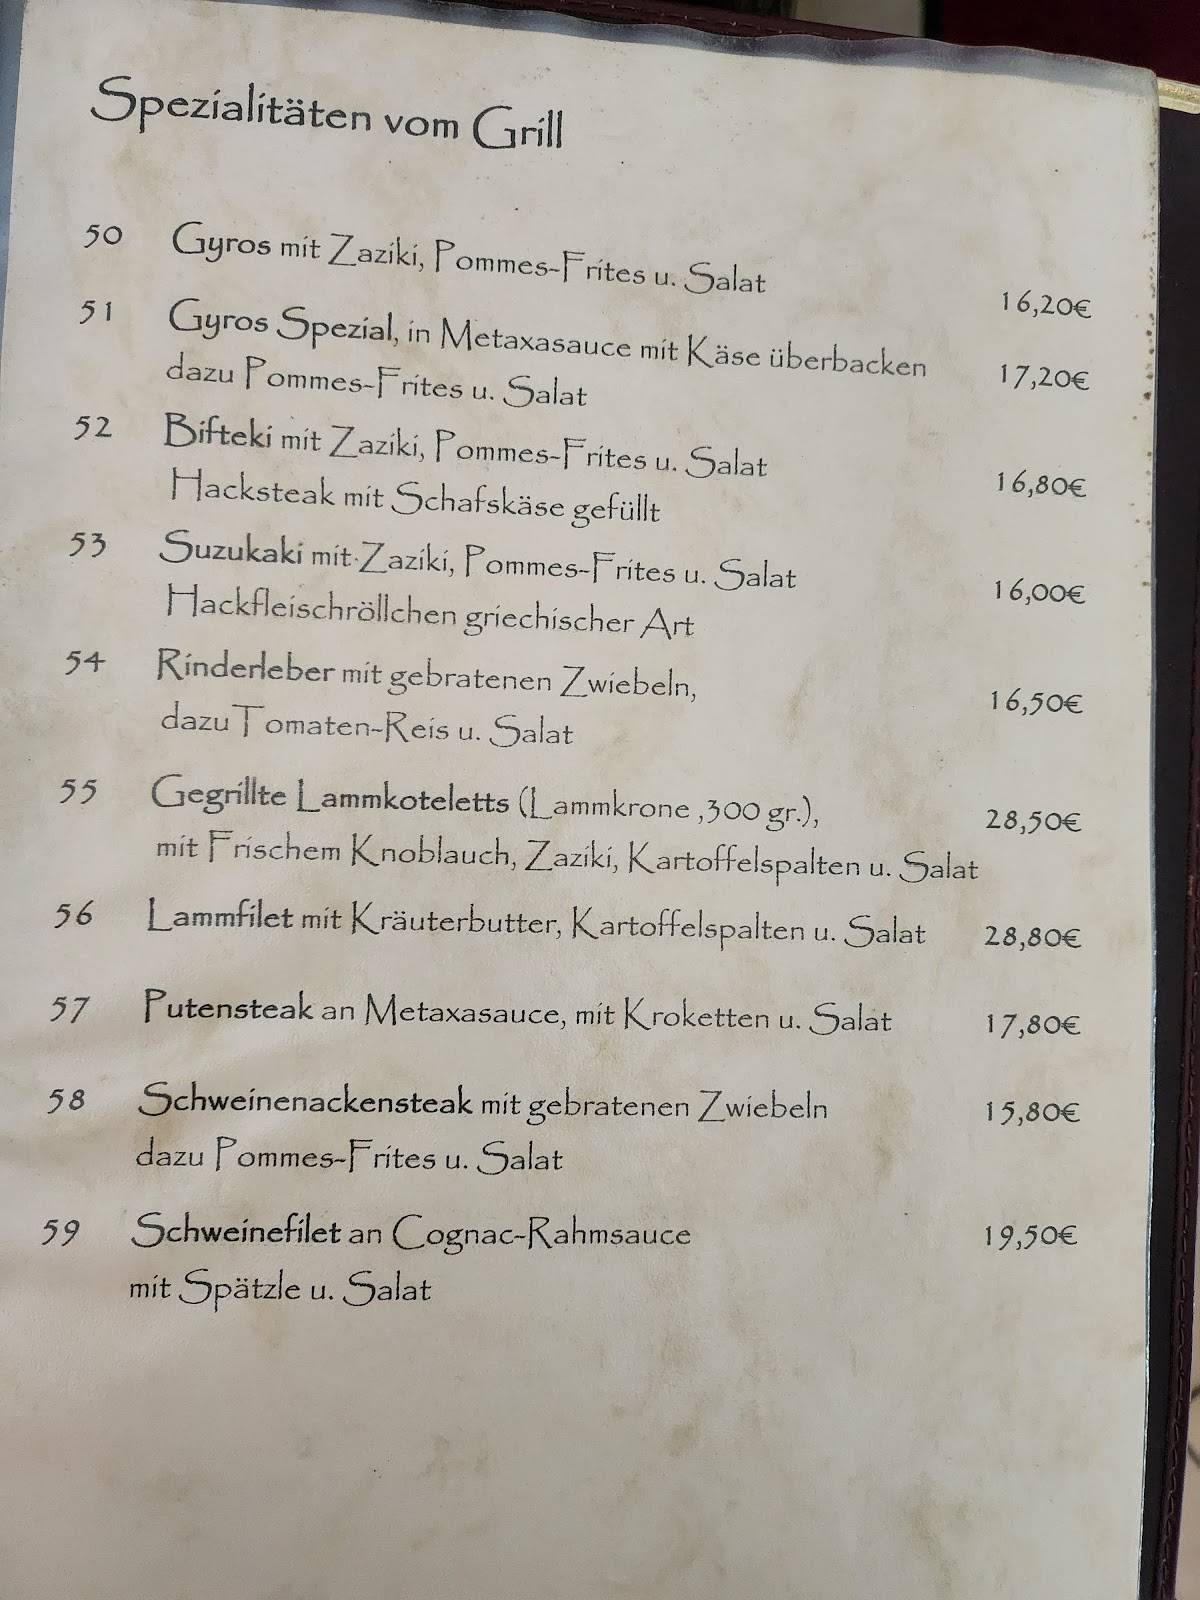 Spezialitäten vom Grill
50 Gyros mit Zaziki, Pommes-Frites u. Salat 16,20€
51 Gyros Spezial, in Metaxasauce mit Käse überbacken 17,20€
dazu Pommes-Frites u. Salat
52 Bifteki mit Zaziki, Pommes-Frites u. Salat 16,80€
Hacksteak mit Schafskäse gefüllt
53 Suzukaki mit Zaziki, Pommes-Frites u. Salat 16,00€
Hackfleischröllchen griechischer Art
54 Rinderleber mit gebratenen Zwiebeln, 16,50€
dazu Tomaten-Reis u. Salat
55 Gegrillte Lammkoteletts (Lammkrone ,300 gr.), 28,50€
mit Frischem Knoblauch, Zaziki, Kartoffelspalten u. Salat
56 Lammfilet mit Kräuterbutter, Kartoffelspalten u. Salat 28,80€
57 Putensteak an Metaxasauce, mit Kroketten u. Salat 17,80€
58 Schweinenackensteak mit gebratenen Zwiebeln 15,80€
dazu Pommes-Frites u. Salat
59 Schweinefilet an Cognac-Rahmsauce 19,50€
mit Spätzle u. Salat